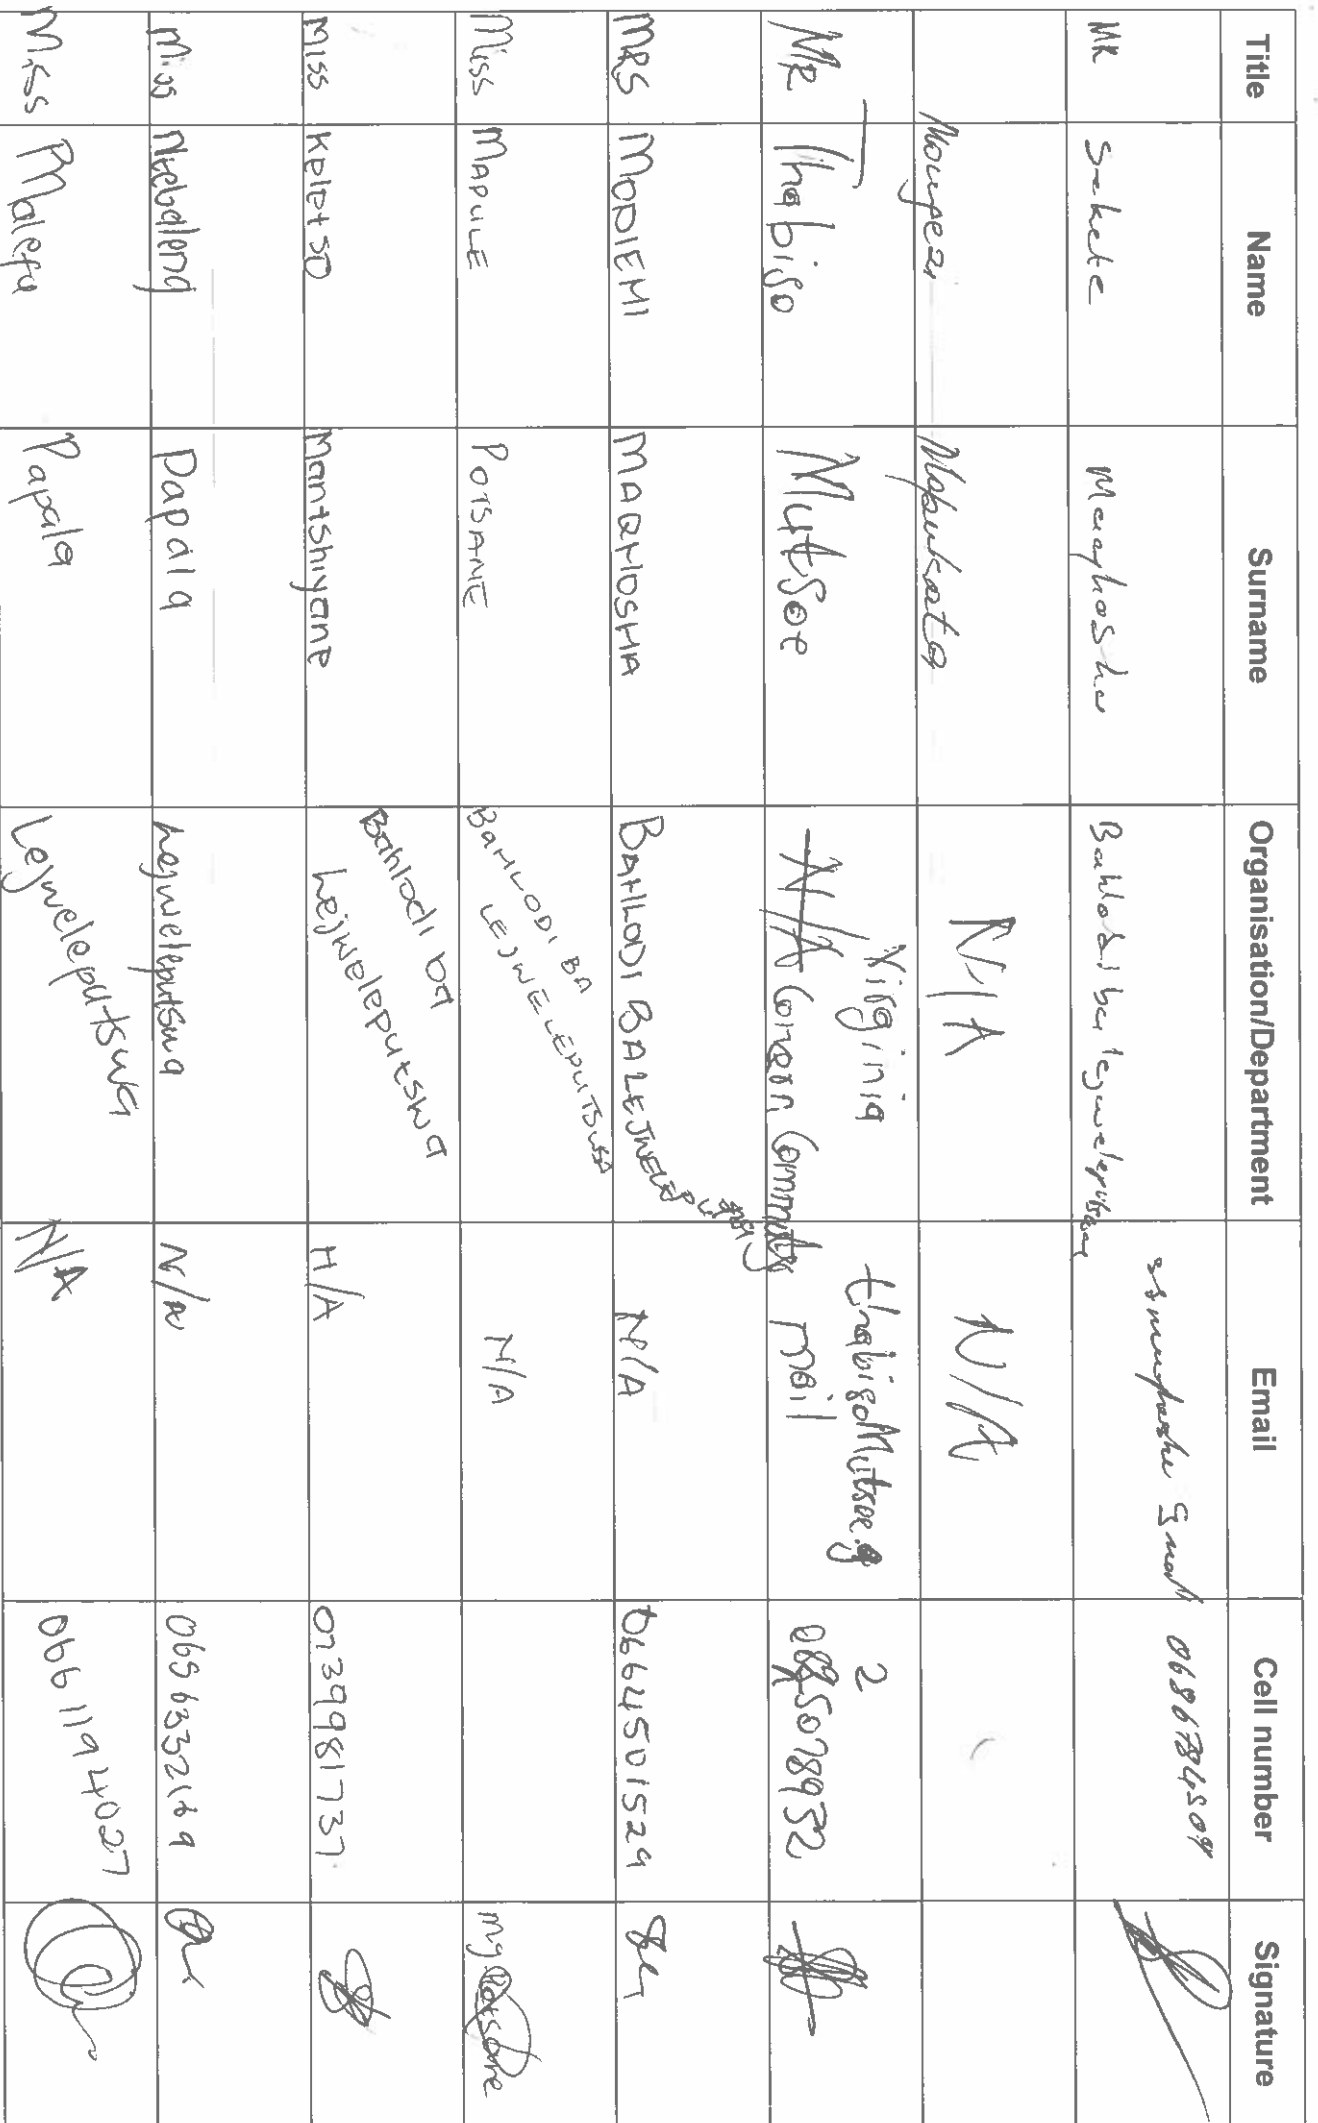 Title Name Surname Organisation/Department Email Cell number Signature
MR Sekete Maqhosha Bahlodi ba lejweleputswa 0686784509
N/A N/A
MR Thabiso Mutsoe N/A Virginia Conern Committy thabisoMutsoe.g mail
MRS MODIEHI MAQHOSHA BAHLODI BA LEJWELEPUTSWA N/A 0664501529
Miss MAPULE POTSANE BAHLODI BA LEJWELEPUTSWA N/A
MISS Keletso Mantshiyane Bahlodi ba Lejweleputswa N/A 0739981737
Miss Papala Lejweleputswa N/A
Miss Malefu Papala Lejweleputswa N/A 0661194027